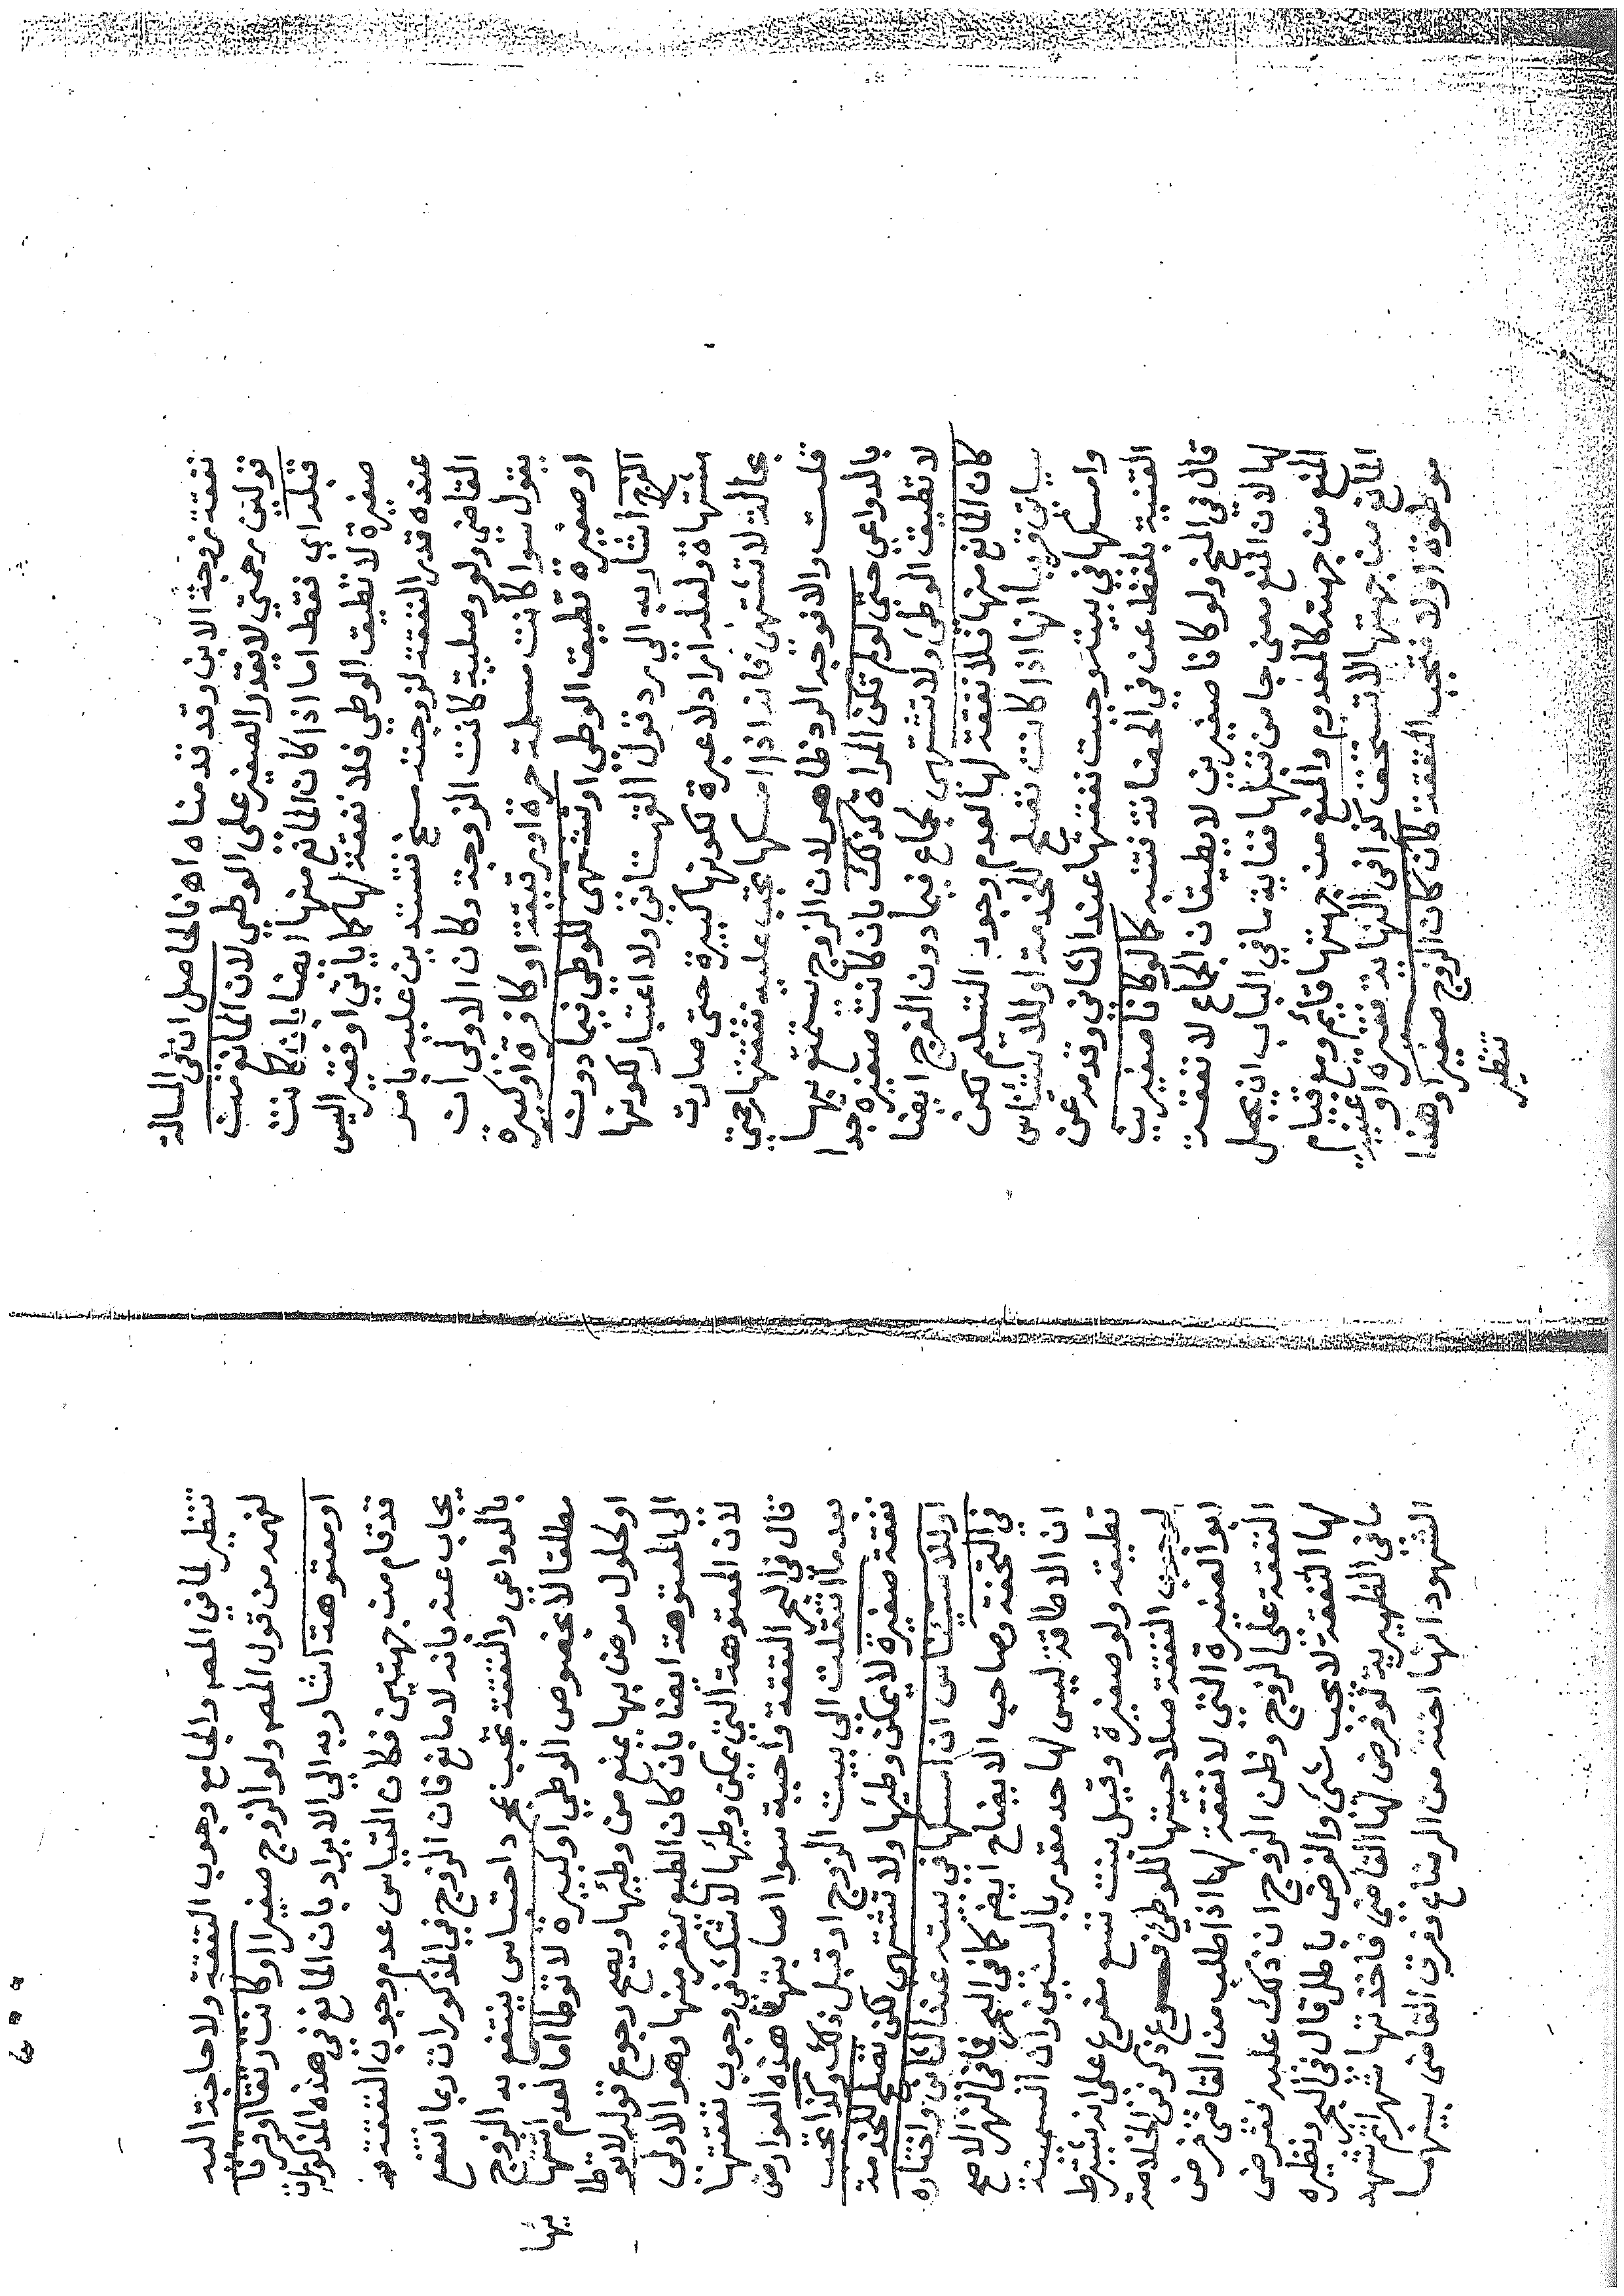 نفقة زوجة الابن وقد قدمناه اه فالحاصل ان في المسالة
قولين رحمتي لا يقدر الصغير على الوطي لان المانع من
قبله اي فقط اما اذا كان المانع منها ايضا بان كانت
صغيرة لا تطيق الوطي فلا نفقة لها كما ياتي او فقير ليس
عنده قدر النفقة لزوجته سمح تستدين عليه بامر
القاضي ولو وصلية كانت الزوجة وكان الاولى ان
يقول سوا كانت مسلمة حرة او رقيقة او كافرة او كبيرة
او صغيرة تطيق الوطي او تشتهى للوطي فيما دون
الفرج اشار به الى رد قول القهستاني ولا اعتبار لكونها
مشتهاة ولعله اراد لا عبرة لكونها كبيرة حتى صارت
بحالة لا تشتهى فانه اذا امسكها تجب عليه نفقتها رحمتي
قلت والا فوجه الرد ظاهر لان الزوج يستمتع بها
بالدواعي حتى لو لم تكن المراة كذلك بان كانت صغيرة جدا
لا تطيق الوطئ ولا تشتهى لجماع فيما دون الفرج ايضا
كان المانع منها فلا نفقة لها لعدم وجوب التسليم لكن
سياتي قريبا انها اذا كانت تصلح للخدمة او للاستئناس
وامسكها في بيته وجبت نفقتها عند الثاني وقد مر عن
القنية بلفظ عن في الحضانة فتنبه كما لو كانا صغيرين
قال في المنح ولو كانا صغيرين لا يطيقان الجماع لا نفقة
لها لان المنع معنى جا من قبلها فغاية ما في الباب ان يجعل
المنع من جهته كالمعدوم والمنع من جهتها قائم ومع قيام
المانع من جهتها لا تستحق كذا في النهاية فقيرة او غنية
موطوءة اولا فتجب النفقة كان كان الزوج صغيرا وهذا
تنظير
تنظير لما في المصر والجامع وجوب النفقة ولا حاجة اليه
لفهمه من قول المصر ولو الزوج صغيرا او كانت رتقا او قرنا
او معتوهة اشار به الى الايراد بان المانع في هذه المذكورات
قد قام من جهتين فكان القياس عدم وجوب النفقة
يجاب عنه بانه لا مانع فان الزوج في المذكورات ربما انتفع
بالدواعي والنفقة تجب بمجرد احتباس ينتفع به الزوج
مطلقا لا بخصوص الوطي او كبيرة لا توطا اما لعدم اشتهائها
او لحلول مرض بها يمنع من وطئها ويصح رجوع قوله لا توطا
الى المعتوهة ايضا بان كان الطبع ينفر منها وهو الاولى
لان المعتوهة التي يمكن وطئها لا شك في وجوب نفقتها
قال في البحر النفقة واجبة سوا اصابتها هذه العوارض
بعد ما انتقلت الى بيت الزوج او قبل ذلك وكذا تجب
نفقة صغيرة لا يمكن وطئها ولا تشتهى لكن تصلح للخدمة
او للاستيناس ان امسكها في بيته عند الثاني واختاره
في التحفة وصاحب الايضاح ايضا كما في البحر فما في النهر الاصح
ان الاطاقة ليس لها حد مقدر بالسنين وان السمينة
تطيقه ولو صغيرة وقيل بنت تسع مفرع على انه يشترط
لوجوب النفقة صلاحيتها للوطئ فروع ذكر في الخلاصة
ابو الصغيرة التي لا نفقة لها اذا طلب من القاضي فرض
النفقة على الزوج وظن الزوج ان ذلك عليه ففرض
لها النفقة لا يجب شئ والفرض باطل قال في البحر ونظيره
ما في الظهيرية لو فرض لها القاضي فاخذتها شهرا ثم شهد
الشهود انها اخته من الرضاع وفرق القاضي بينهما